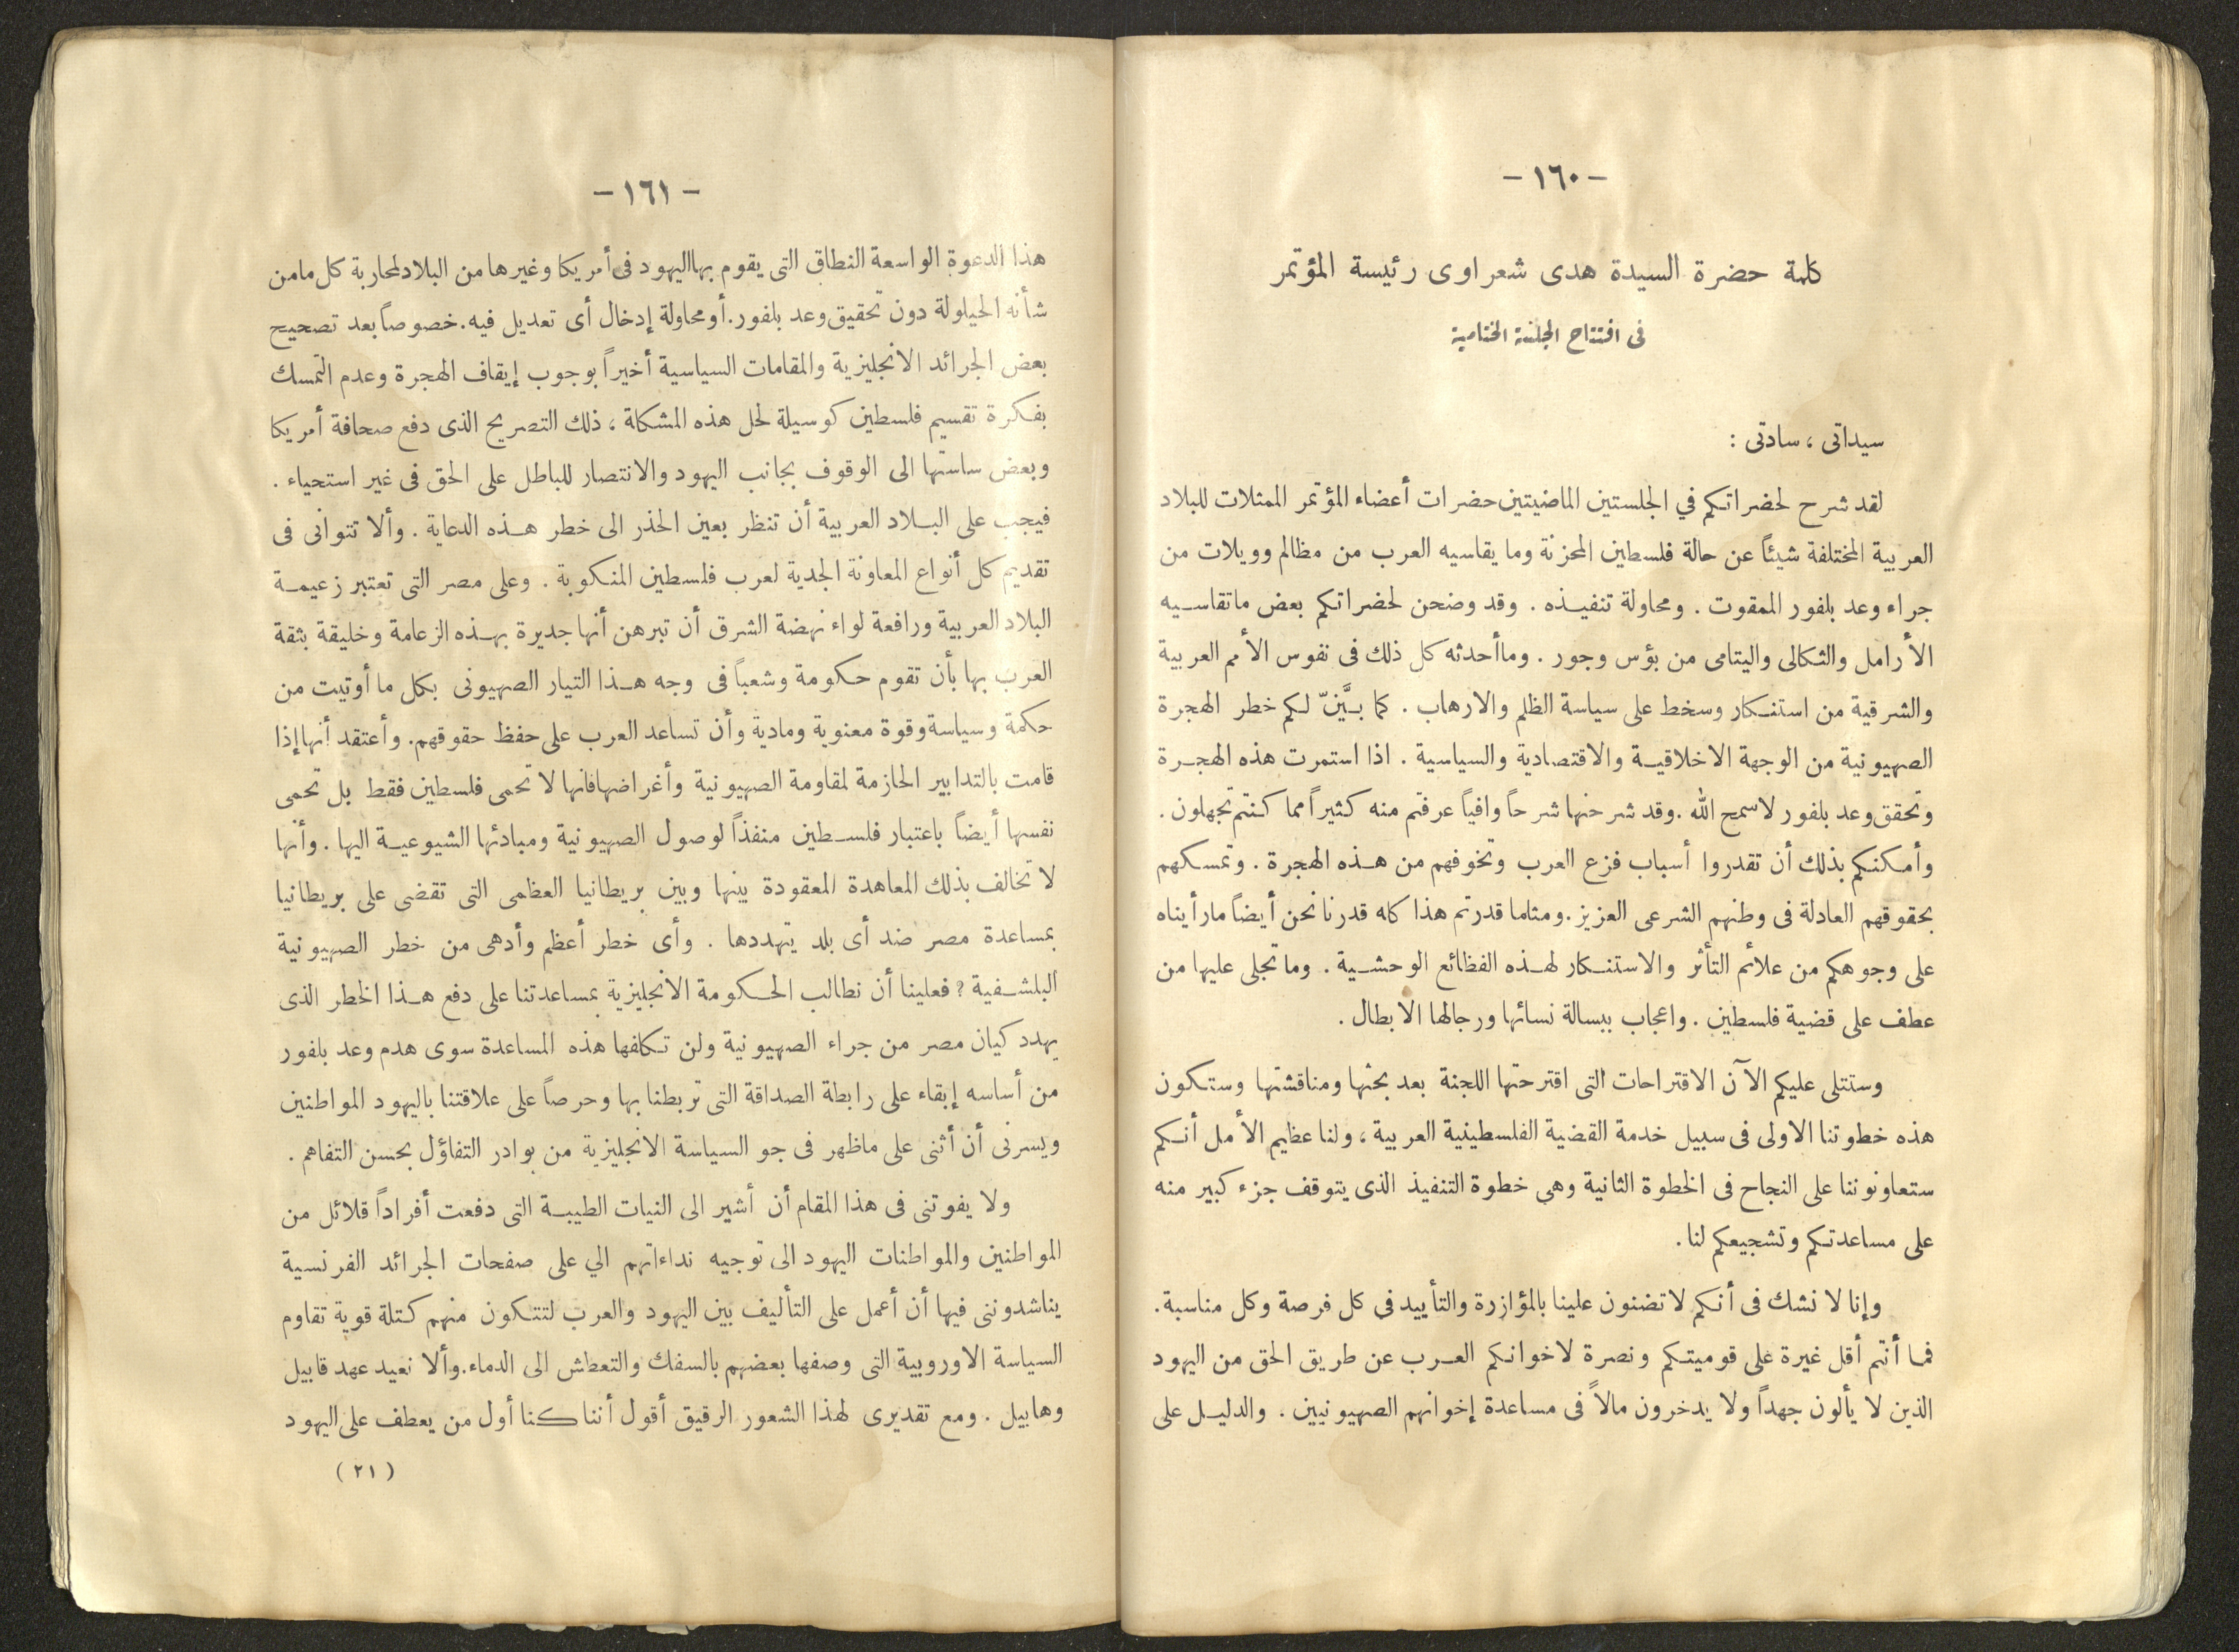 - ١٦٠ -
كلمة حضرة السيدة هدى شعراوى رئيسة المؤتمر
فى افتتاح الجلسة الختامية
سيداتى ، سادتى :
لقد شرح لحضراتكم في الجلستين الماضيتين حضرات أعضاء المؤتمر الممثلات للبلاد
العربية المختلفة شيئاً عن حالة فلسطين المحزنة وما يقاسيه العرب من مظالم وويلات من
جراء وعد بلفور الممقوت . ومحاولة تنفيذه . وقد وضحن لحضراتكم بعض ماتقاسيه
الأرامل والثكالى واليتامى من بؤس وجور . وماأحدثه كل ذلك فى نفوس الأمم العربية
والشرقية من استنكار وسخط على سياسة الظلم والارهاب . كما بيَّنّ لكم خطر الهجرة
الصهيونية من الوجهة الاخلاقية والاقتصادية والسياسية . اذا استمرت هذه الهجرة
وتحقق وعد بلفور لاسمح الله . وقد شرحنها شرحاً وافياً عرفتم منه كثيراً مما كنتم تجهلون .
وأمكنكم بذلك أن تقدروا أسباب فزع العرب وتخوفهم من هذه الهجرة . وتمسكهم
بحقوقهم العادلة فى وطنهم الشرعى العزيز . ومثلما قدرتم هذا كله قدرنا نحن أيضاً مارأيناه
على وجوهكم من علائم التأثر والاستنكار لهذه الفظائع الوحشية . وماتجلى عليها من
عطف على قضية فلسطين . واعجاب ببسالة نسائها ورجالها الابطال .
وستتلى عليكم الآن الاقتراحات التى اقترحتها اللجنة بعد بحثها ومناقشتها وستكون
هذه خطوتنا الاولى فى سبيل خدمة القضية الفلسطينية العربية ، ولنا عظيم الأمل أنكم
ستعاونوننا على النجاح فى الخطوة الثانية وهي خطوة التنفيذ الذى يتوقف جزء كبير منه
على مساعدتكم وتشجيعكم لنا .
وإنا لا نشك فى أنكم لاتضنون علينا بالمؤازرة والتأييد في كل فرصة وكل مناسبة .
فما أنتم أقل غيرة على قوميتكم ونصرة لاخوانكم العرب عن طريق الحق من اليهود
الذين لا يألون جهداً ولا يدخرون مالاً فى مساعدة إخوانهم الصهيونيين . والدليل على
- ١٦١ -
هذا الدعوة الواسعة النطاق التى يقوم بها اليهود فى أمريكا وغيرها من البلاد لمحاربة كل مامن
شأنه الحيلولة دون تحقيق وعد بلفور . أو محاولة إدخال أى تعديل فيه . خصوصاً بعد تصحيح
بعض الجرائد الانجليزية والمقامات السياسية أخيراً بوجوب إيقاف الهجرة وعدم التمسك
بفكرة تقسيم فلسطين كوسيلة لحل هذه المشكلة ، ذلك التصريح الذى دفع صحافة أمريكا
وبعض ساستها الى الوقوف بجانب اليهود والانتصار للباطل على الحق فى غير استحياء .
فيجب على البلاد العربية أن تنظر بعين الحذر الى خطر هذه الدعاية . وألا تتوانى فى
تقديم كل أنواع المعاونة الجدية لعرب فلسطين المنكوبة . وعلى مصر التى تعتبر زعيمة
البلاد العربية ورافعة لواء نهضة الشرق أن تبرهن أنها جديرة بهذه الزعامة وخليقة بثقة
العرب بها بأن تقوم حكومة وشعباً فى وجه هذا التيار الصهيونى بكل ما أوتيت من
حكمة وسياسة وقوة معنوية ومادية وأن تساعد العرب على حفظ حقوقهم . وأعتقد أنها إذا
قامت بالتدابير الحازمة لمقاومة الصهيونية وأغراضها فانها لا تحمى فلسطين فقط بل تحمى
نفسها أيضاً باعتبار فلسطين منفذاً لوصول الصهيونية ومبادئها الشيوعية اليها . وأنها
لا تخالف بذلك المعاهدة المعقودة بينها وبين بريطانيا العظمى التى تقضى على بريطانيا
بمساعدة مصر ضد أى بلد يتهددها . وأى خطر أعظم وأدهى من خطر الصهيونية
البلشفية ? فعلينا أن نطالب الحكومة الانجليزية بمساعدتنا على دفع هذا الخطر الذى
يهدد كيان مصر من جراء الصهيونية ولن تكلفها هذه المساعدة سوى هدم وعد بلفور
من أساسه إبقاء على رابطة الصداقة التى تربطنا بها وحرصاً على علاقتنا باليهود المواطنين
ويسرنى أن أثنى على ماظهر فى جو السياسة الانجليزية من بوادر التفاؤل بحسن التفاهم .
ولا يفوتنى فى هذا المقام أن أشير الى النيات الطيبة التى دفعت أفراداً قلائل من
المواطنين والمواطنات اليهود الى توجيه نداءاتهم الي على صفحات الجرائد الفرنسية
يناشدوننى فيها أن أعمل على التأليف بين اليهود والعرب لتتكون منهم كتلة قوية تقاوم
السياسة الاوروبية التى وصفها بعضهم بالسفك والتعطش الى الدماء . وألا نعيد عهد قابيل
وهابيل . ومع تقديرى لهذا الشعور الرقيق أقول أننا كنا أول من يعطف على اليهود
( ٢١ )